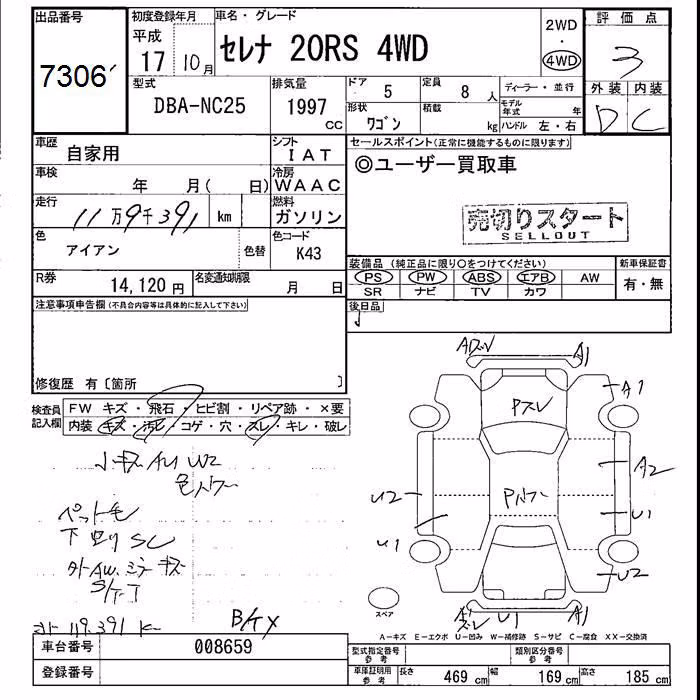 出品番号
7306
初度登録年月
平成
17 10月
車名・グレード
セレナ 20RS 4WD
2WD
・
4WD
評価点
3
外装 内装
D C
型式
DBA-NC25
排気量
1997
cc
ドア
5
定員
8 人
ディーラー・並行
形状
ワゴン
積載
kg
モデル年式 年
ハンドル 左・右
車歴
自家用
シフト
IAT
セールスポイント(正常に機能するものに限ります)
◎ユーザー買取車
車検
年 月( 日)
冷房
WAAC
走行
11万9千391 km
燃料
ガソリン
売切りスタート
SELLOUT
色
アイアン
色替
色コード
K43
装備品(純正品に限り○をつけてください)
PS PW ABS エアB AW
SR ナビ TV カワ
新車保証書
有・無
R券
14,120円
名変通知期限
月 日
後日品
注意事項申告欄(不具合内容等は具体的に記入して下さい)
修復歴 有〔箇所 〕
検査員
記入欄
FW キズ・飛石・ヒビ割・リペア跡・×要
内装 キズ・汚ビ・コゲ・穴・スレ・キレ・破レ
小キズ AU U2
色ムラ
ペット毛
下回り SC
外AW.ミラーキズ
119,391 K
A1
A1
Pズレ
A2
U2
U1
U1
U2
U1
A1
スペア
A-キズ E-エクボ U-凹み W-補修跡 S-サビ C-腐食 XX-交換済
車台番号
008659
登録番号
型式指定番号
参考
類別区分番号
参考
車庫証明用
参考
長さ 469 cm 幅 169 cm 高さ 185 cm